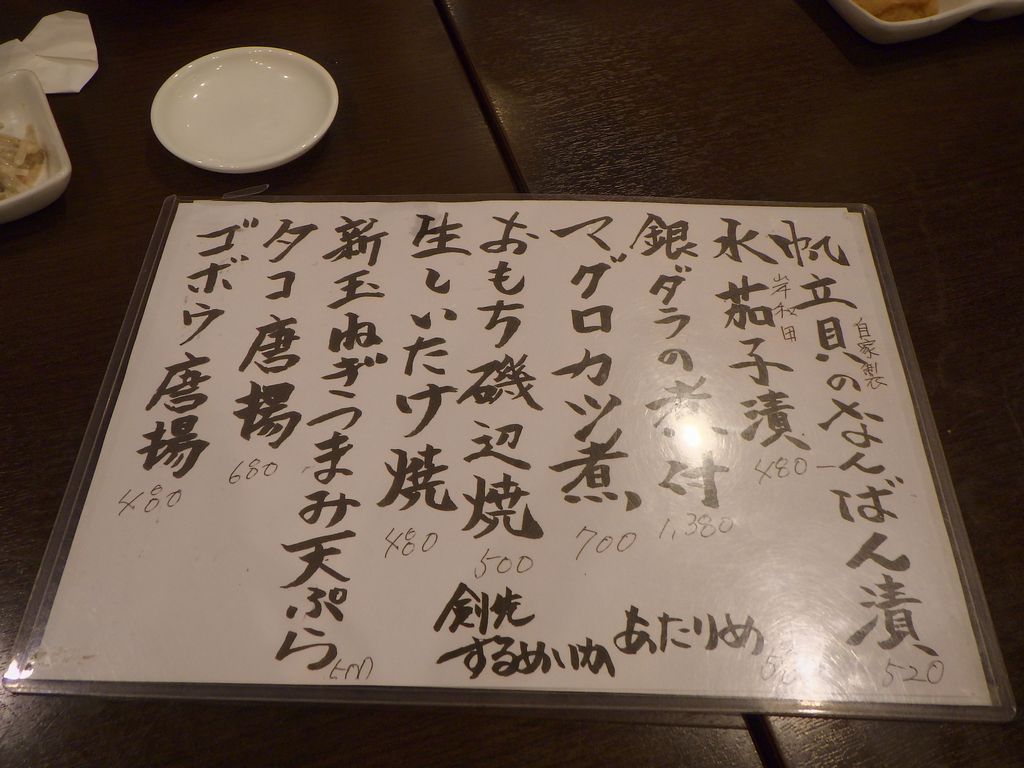 自家製
帆立貝のなんばん漬
520
岸和田
水茄子漬
480-
銀ダラの煮付
1,380
マグロカツ煮
700
おもち磯辺焼
500
生しいたけ焼
480
新玉ねぎつまみ天ぷら
500
タコ唐揚
680
ゴボウ唐揚
480
あたりめ
剣先
するめいか